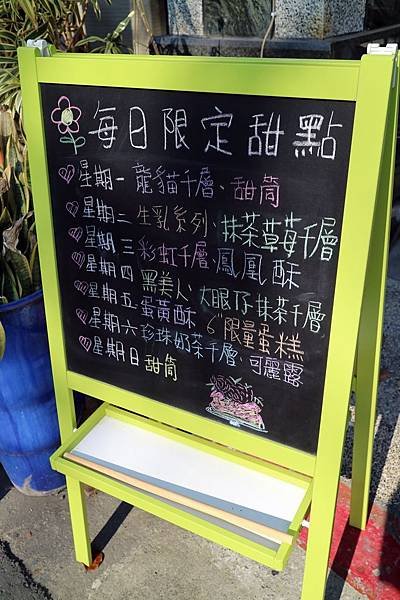 每日限定甜點
星期一 龍貓千層、甜筒
星期二 生乳系列、抹茶草莓千層
星期三 彩虹千層、鳳凰酥
星期四 黑美人、大眼仔抹茶千層
星期五 蛋黃酥、6"限量蛋糕
星期六 珍珠奶茶千層、可麗露
星期日 甜筒